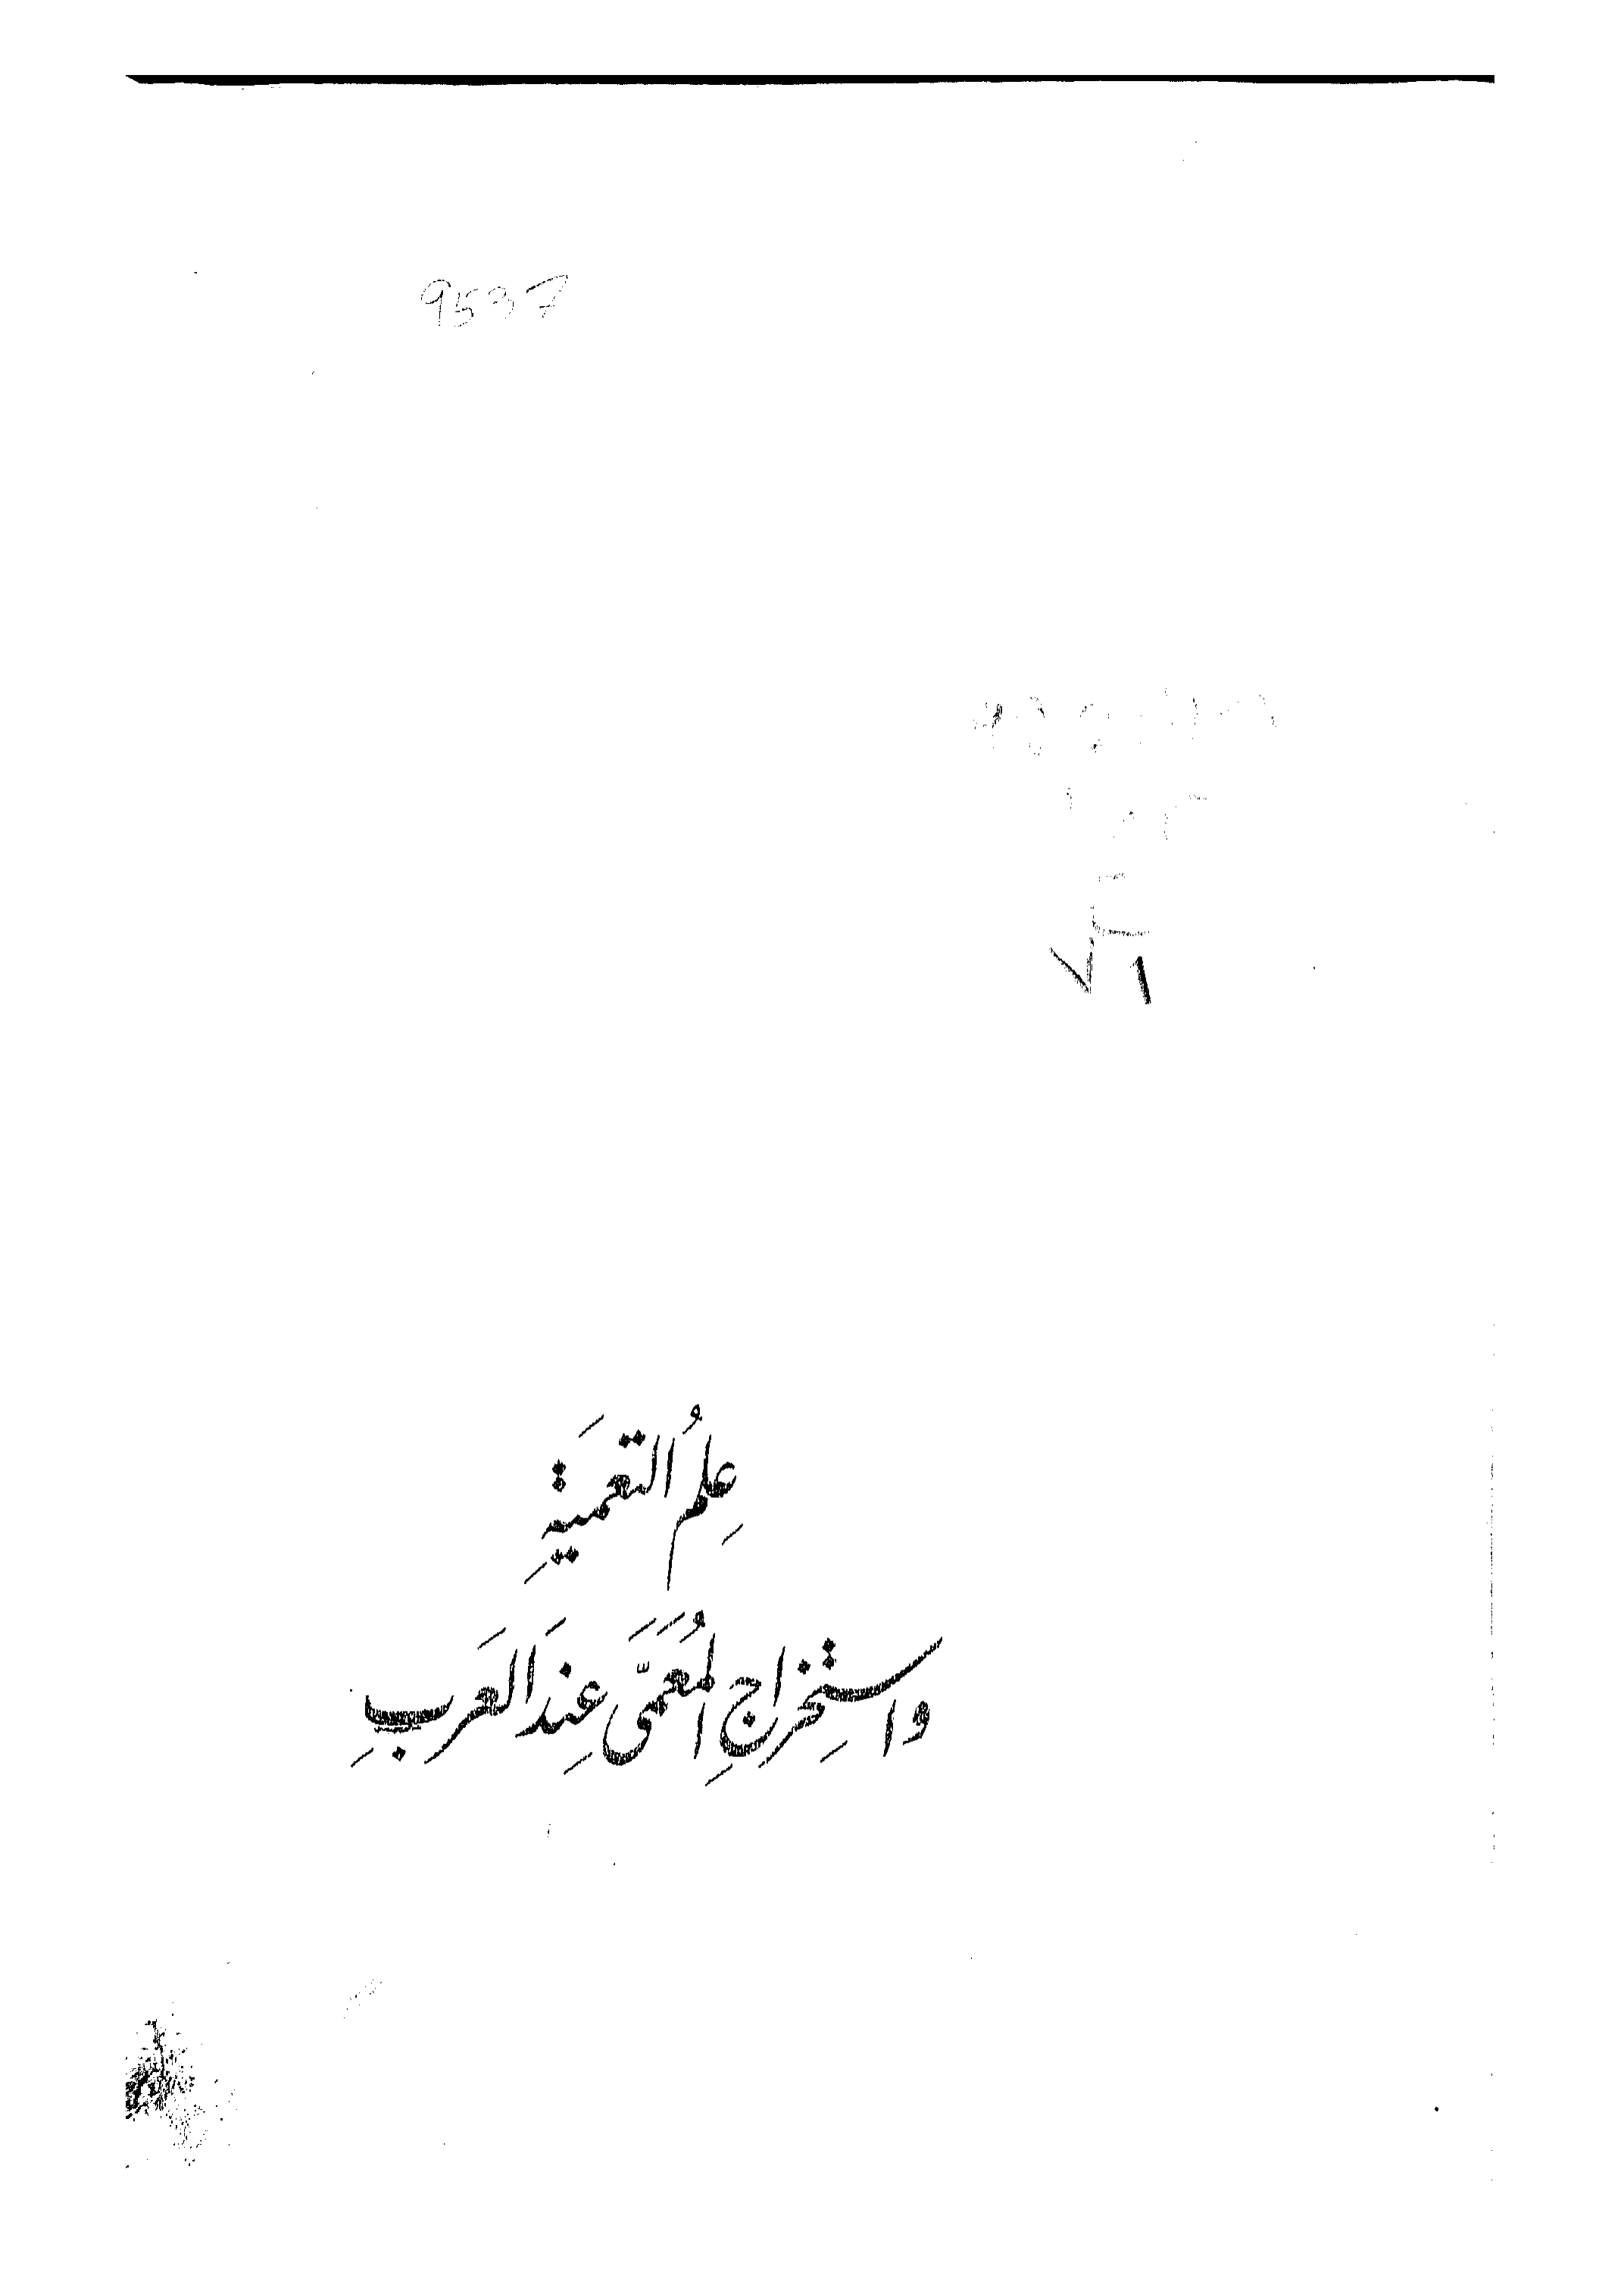 9537
√1
عِلمُ التعميَةِ
واستِخراجِ المُعَمَّى عِندَ العَربِ